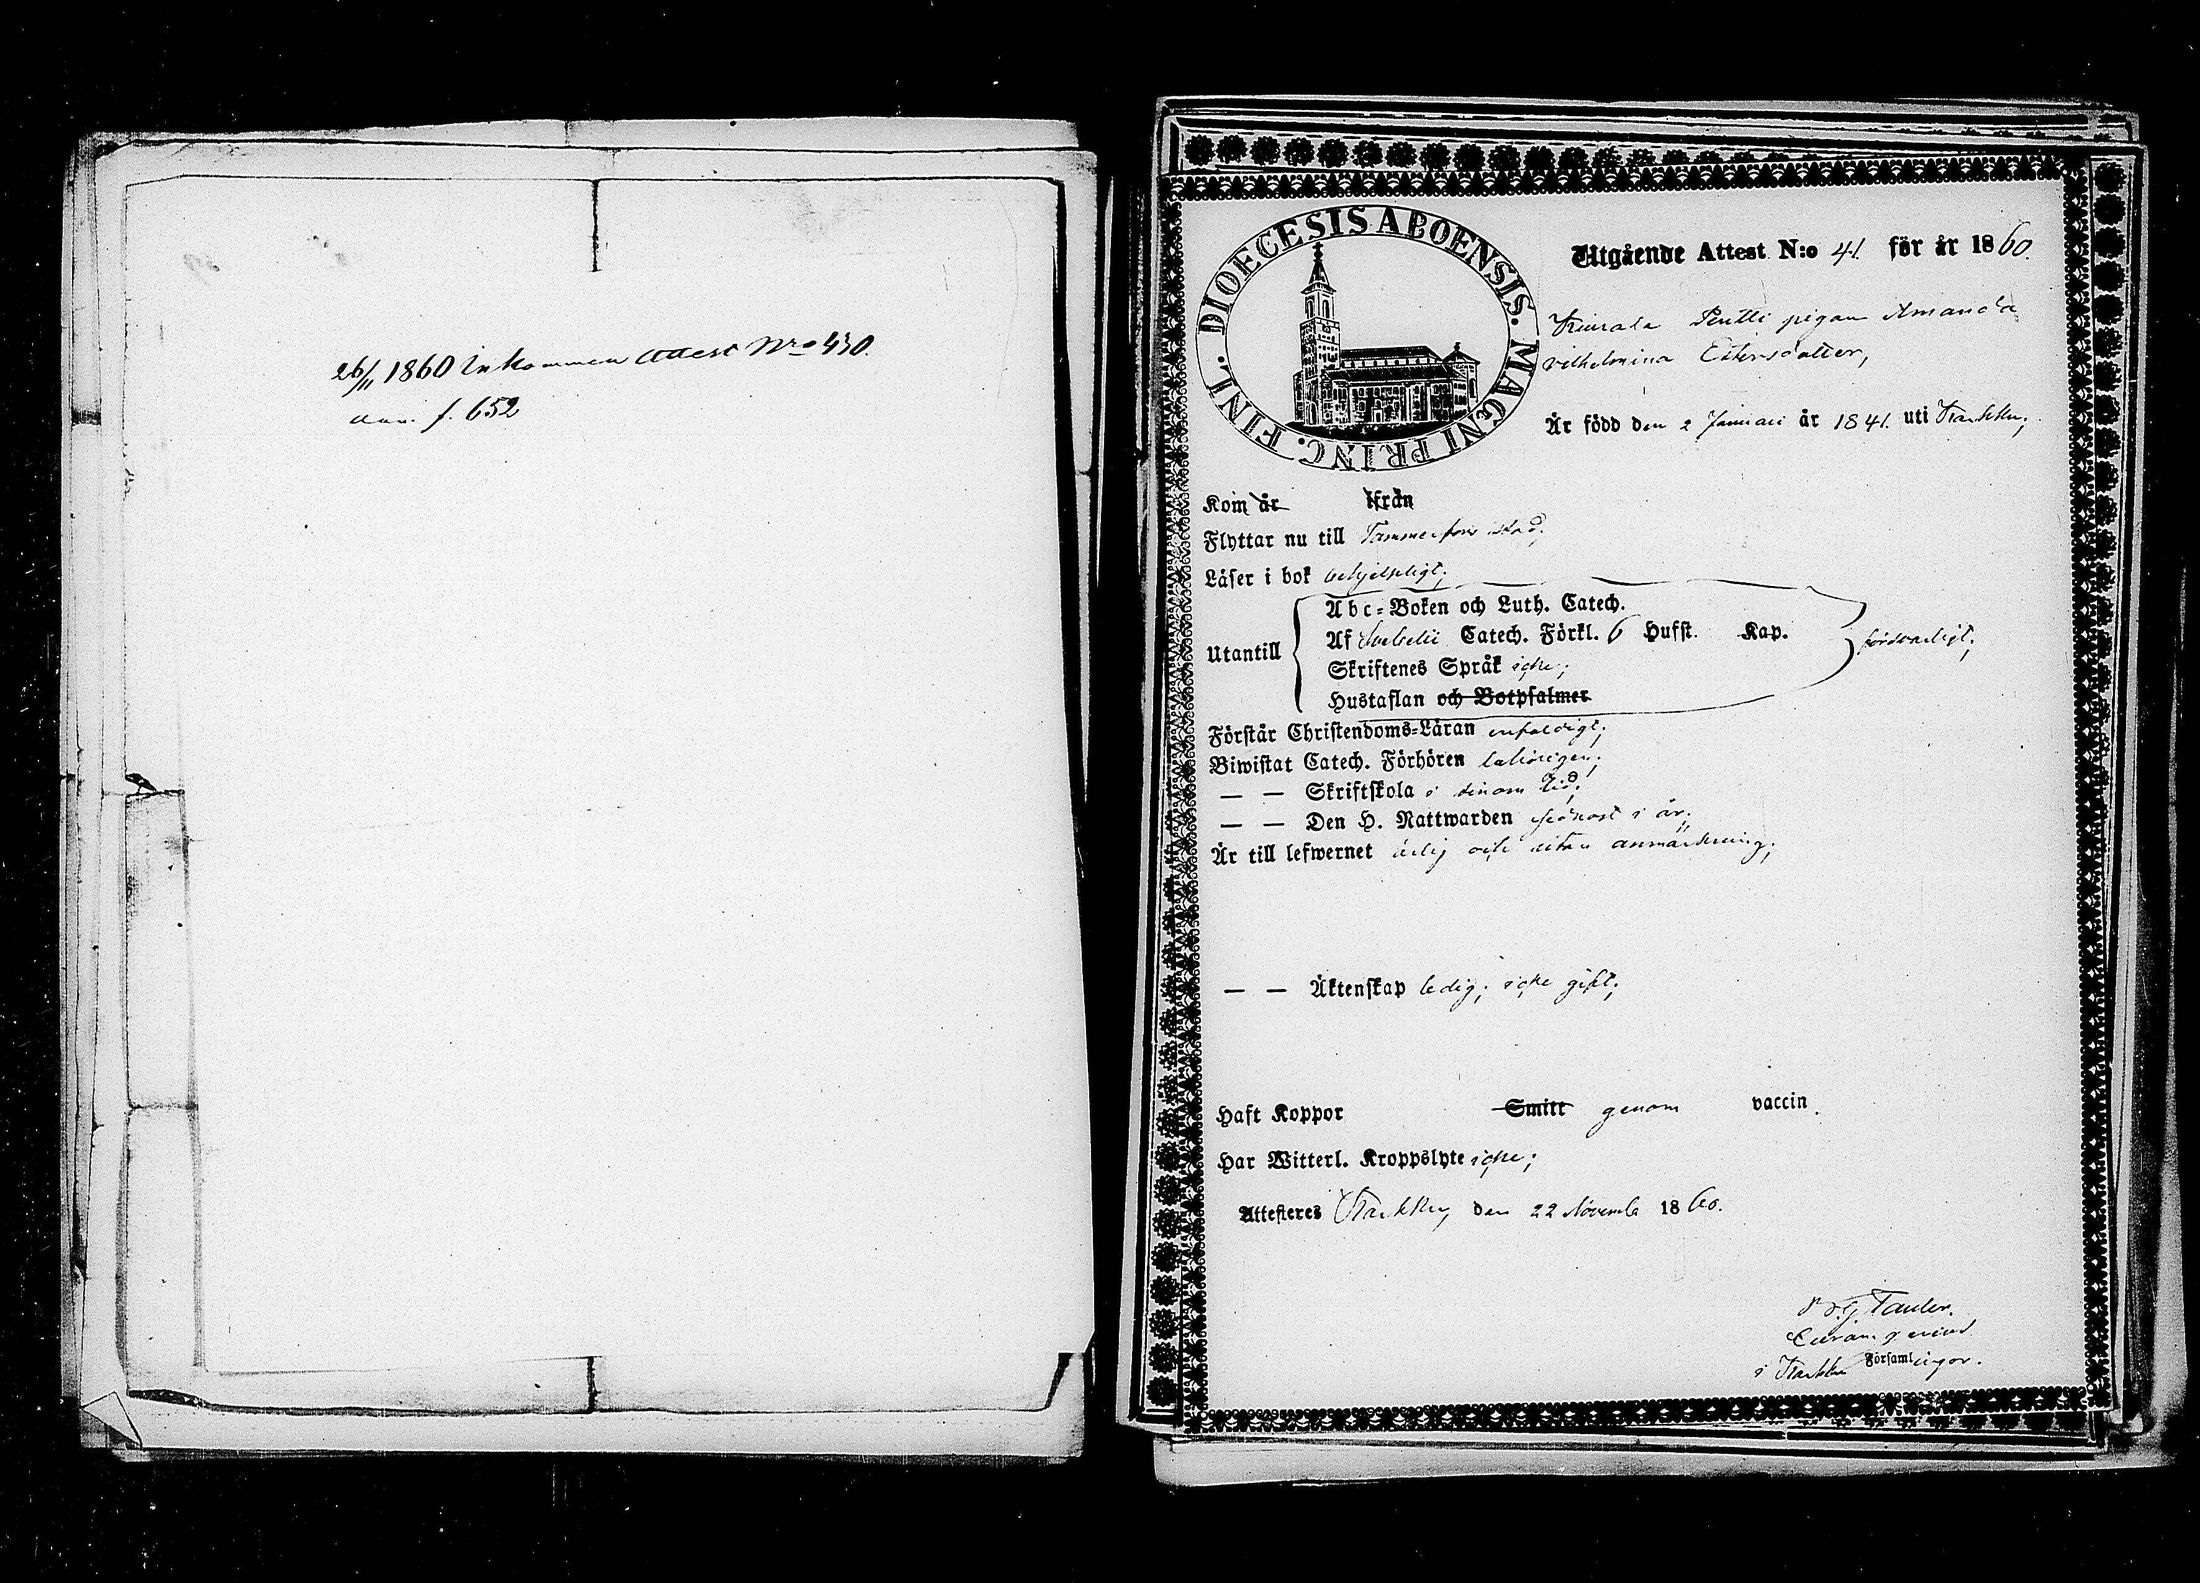 26/11 1860 Inkommen Attest Nro 430.
ann. f. 652
DIOECESIS ABOENSIS. MAGNI PRINC. FINL.
Utgående Attest N:o 41 för år 1860.
Pentti pigan Amanda
Vilhelmina Estersdotter,
Är född den 2 Januari år 1841. uti Karkku;
Kom år ifrån
Flyttar nu till Tammerfors stad;
Läser i bok behjelpligt;
Utantill
Abc-Boken och Luth. Catech.
Af Svebelii Catech. Förkl. 6 Hufst. Kap.
Skriftenes Språk icke;
Hustaflan och Botpsalmer
försvarligt;
Förstår Christendoms-Läran enfaldigt;
Biwistat Catech. Förhören behörigen;
— — Skriftskola i sinom tid;
— — Den H. Nattwarden sednast i år;
Är till lefwernet ärlig och utan anmärkning;
— — Äktenskap ledig; icke gift;
Haft Koppor Smitt genom vaccin.
Har Witterl. Kroppslyte icke;
Attesteras Karkku, den 22 November 1860.
Tauler.
i Karkku Församlingar.